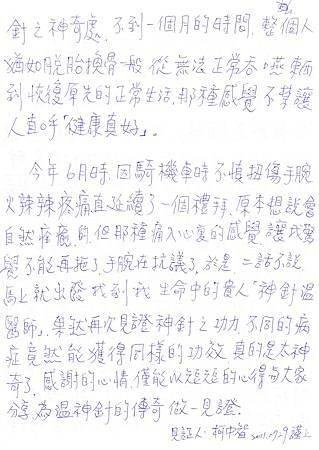 針之神奇處，不到一個月的時間，整個人
猶如脫胎換骨一般，從無法正常吞嚥東西
到恢復原先的正常生活，那種感覺不禁讓
人直呼「健康真好」。
今年6月時，因騎機車時不慎扭傷手腕
火辣辣疼痛直延續了一個禮拜，原本想說會
自然痊癒的，但那種痛入心扉的感覺讓我驚
覺不能再拖了，手腕在抗議了，於是二話不說，
馬上就出發找到我生命中的貴人「神針溫
醫師」，果然再次見證神針之功力，不同的病
症竟然能獲得同樣的功效，真的是太神
奇了，感謝的心情，僅能以短短的心得與大家
分享，為溫神針的傳奇做一見證．
見証人：柯中智 2011.7.9 謹上